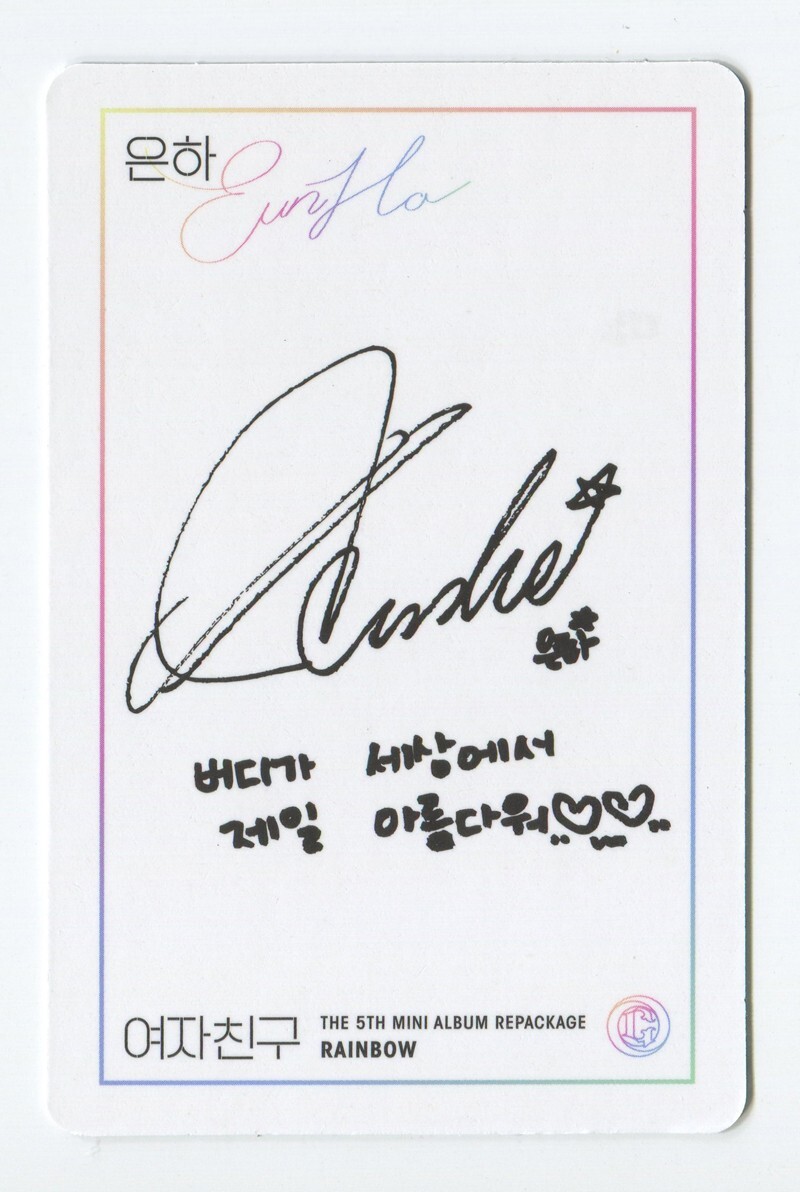 은하
EunHa
은하
버디가 세상에서
제일 아름다워♡♡
여자친구
THE 5TH MINI ALBUM REPACKAGE
RAINBOW